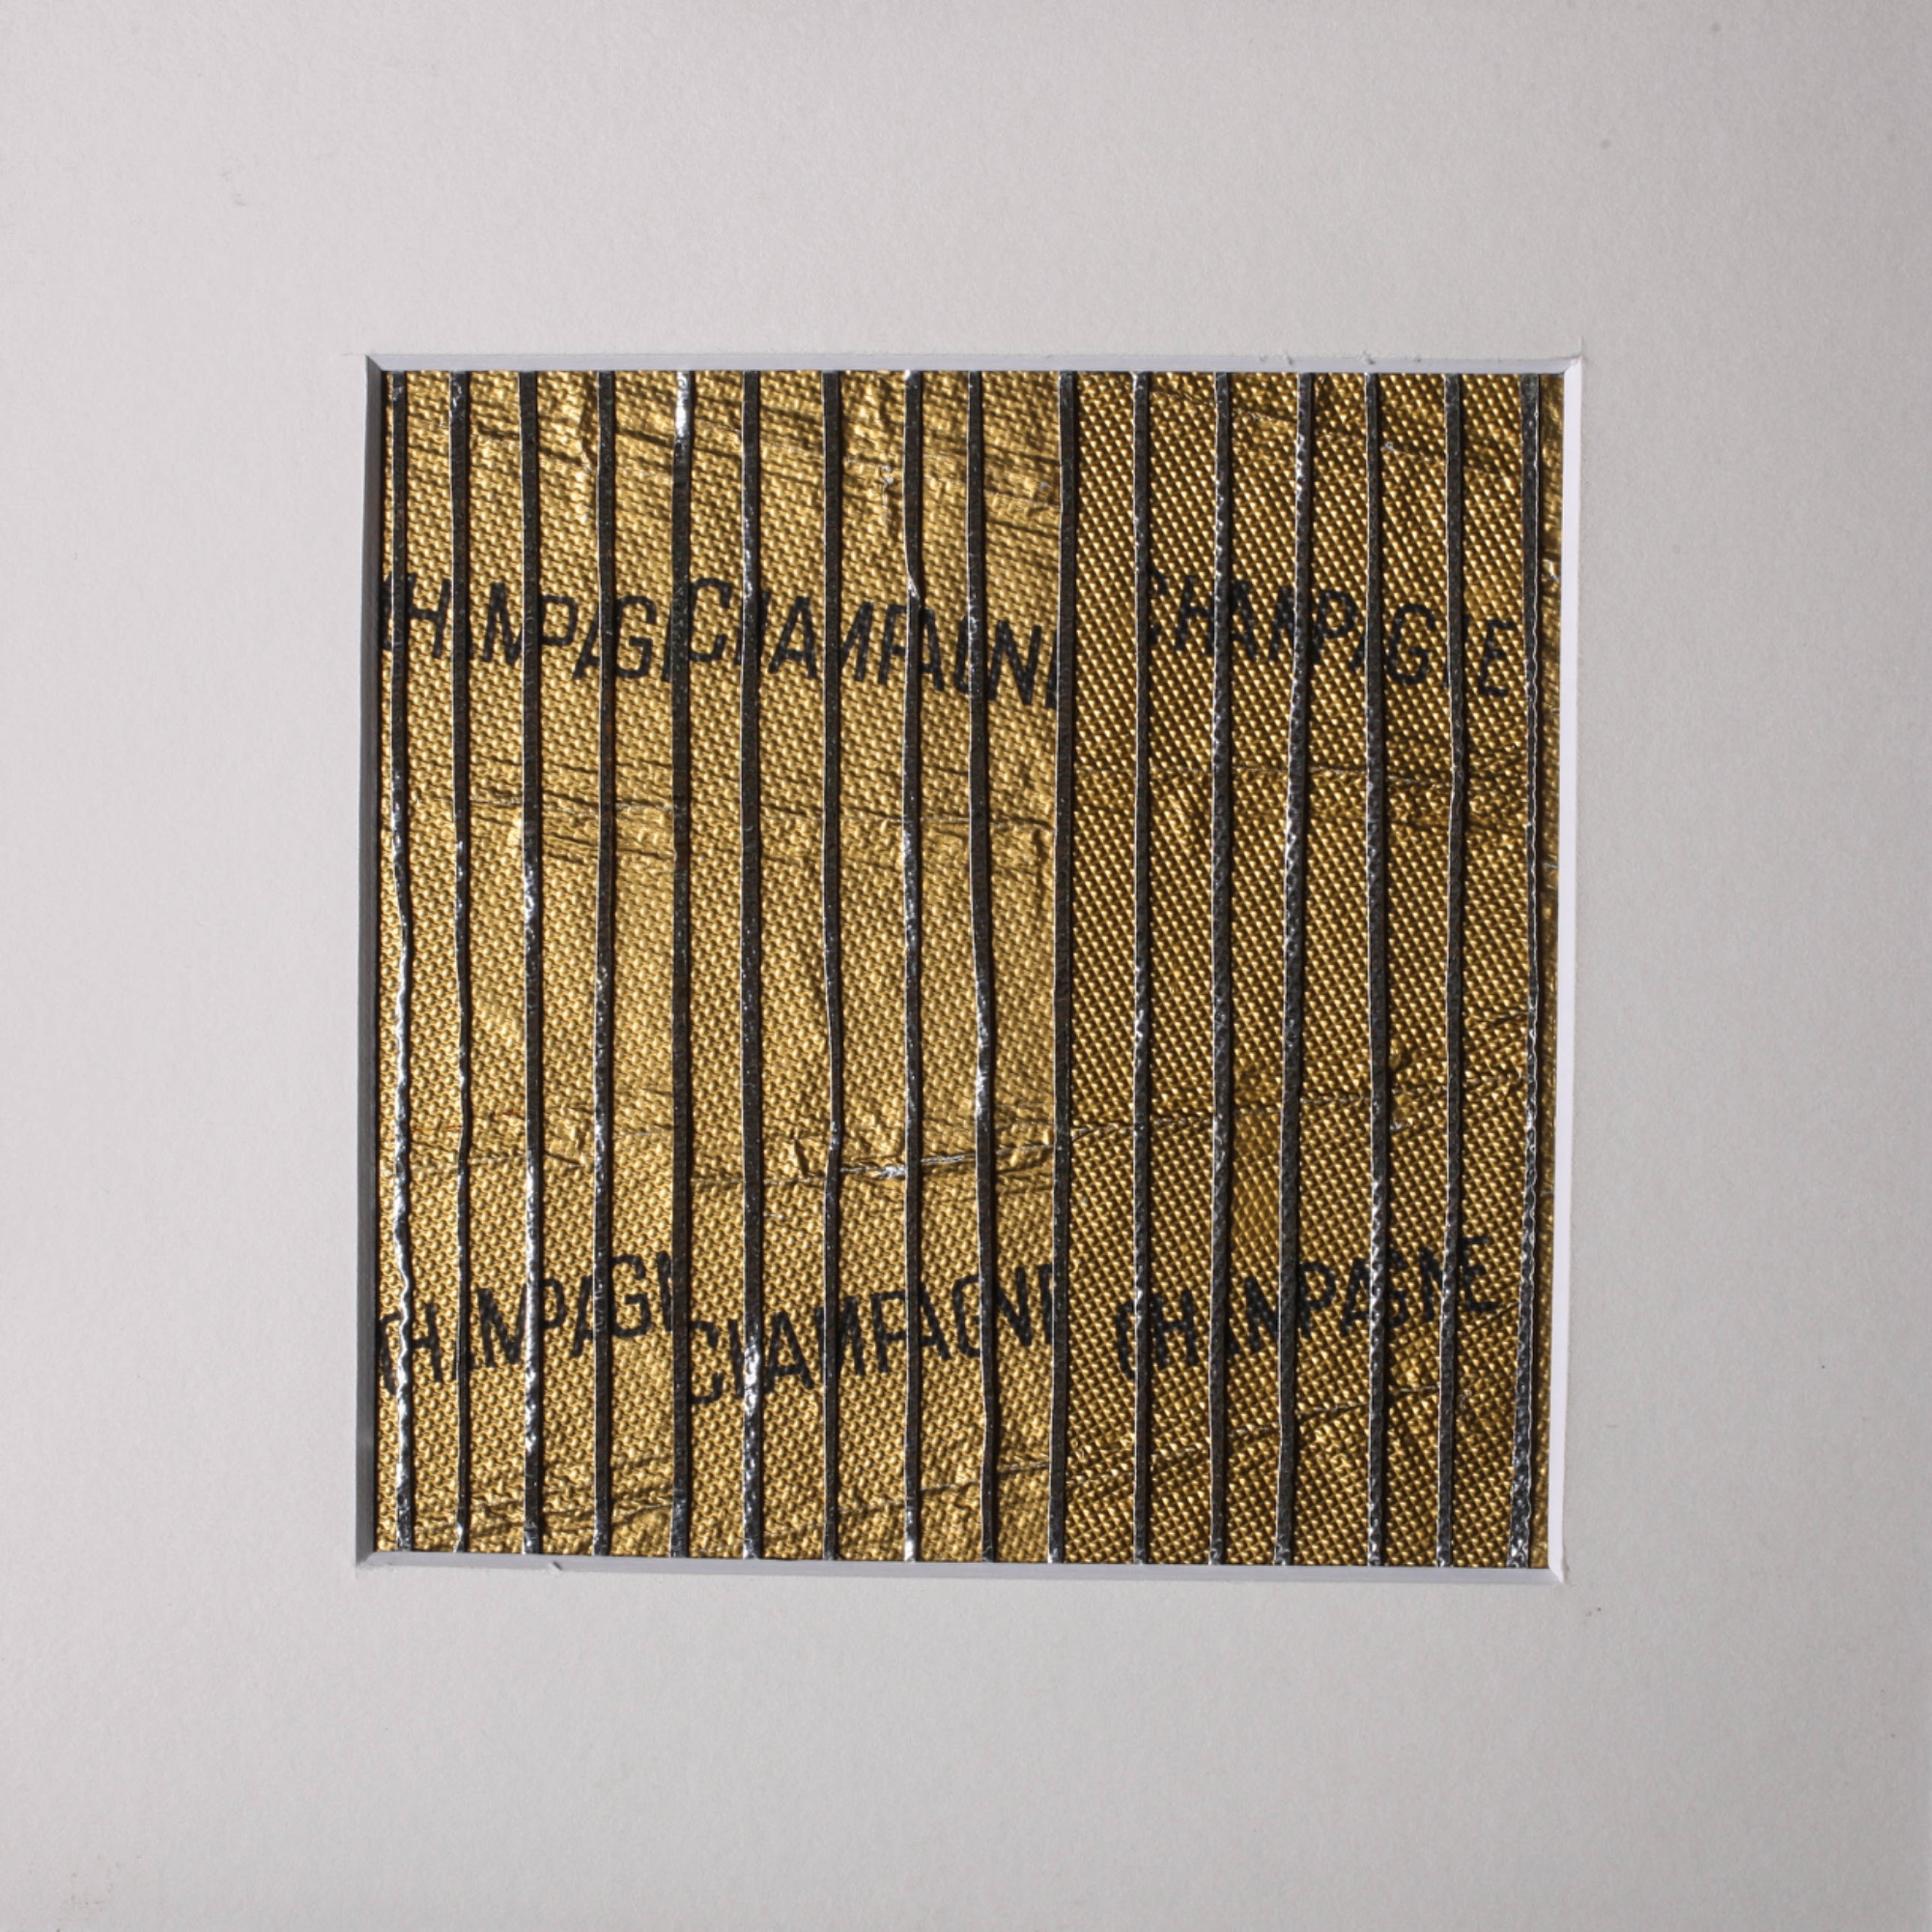 CHAMPAGN CHAMPAGNE CHAMPAGNE
CHAMPAGN CHAMPAGNE CHAMPAGNE